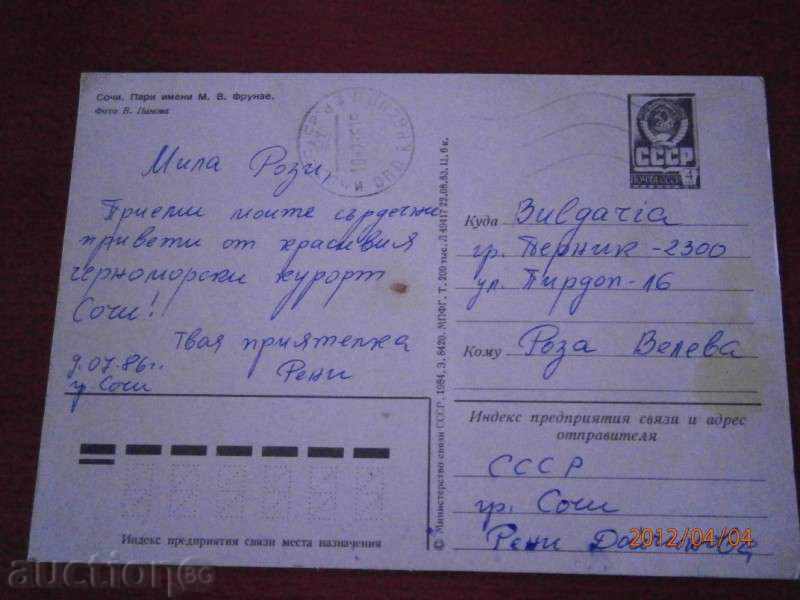 Сочи. Парк имени М. В. Фрунзе.
Фото В. Панова
Мила Рози,
Приеми моите сърдечни
привети от красивия
черноморски курорт
Сочи!
Твоя приятелка
Рени
9.07.86г.
гр. Сочи
Индекс предприятия связи места назначения
© Министерство связи СССР, 1984. З. 8420. МПФГ. Т. 200 тыс. Л 49417 22.08.83. Ц. 6 к.
СССР
ПОЧТА СССР
4
Куда Bulgaria
гр. Перник - 2300
ул. Пирдоп - 16
Кому Роза Велева
Индекс предприятия связи и адрес
отправителя
СССР
гр. Сочи
Рени
2012/04/04
auction BG